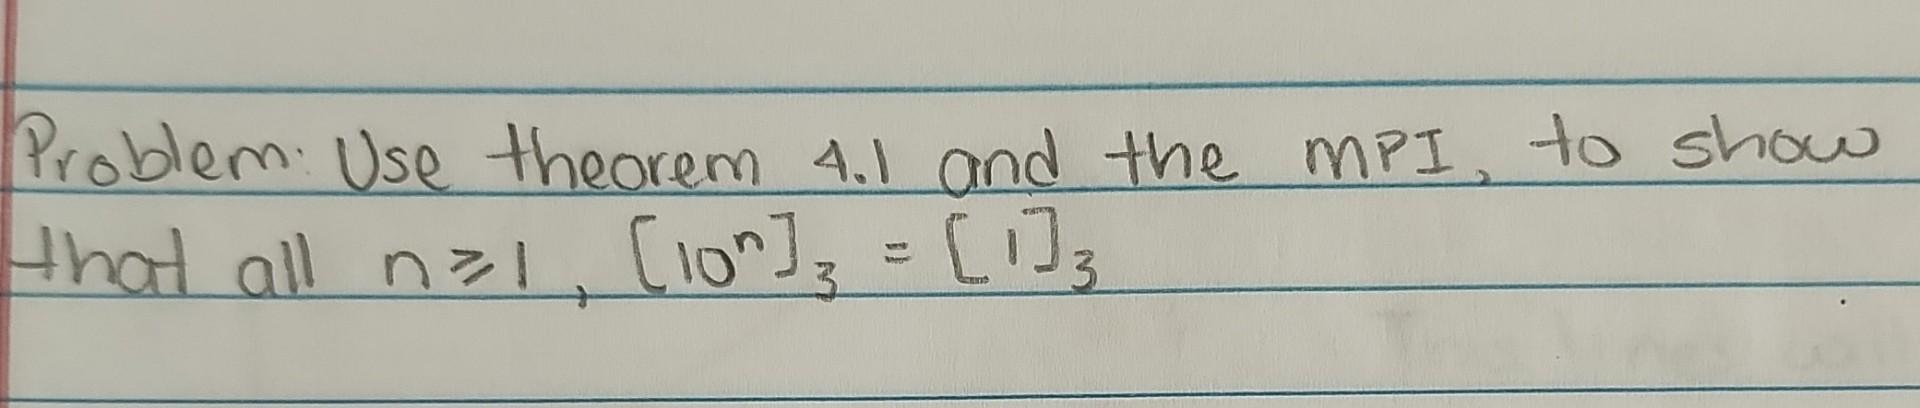 Problem: Use theorem 4.1 and the MPI, to show
that all n ≥ 1, [10ⁿ]₃ = [1]₃